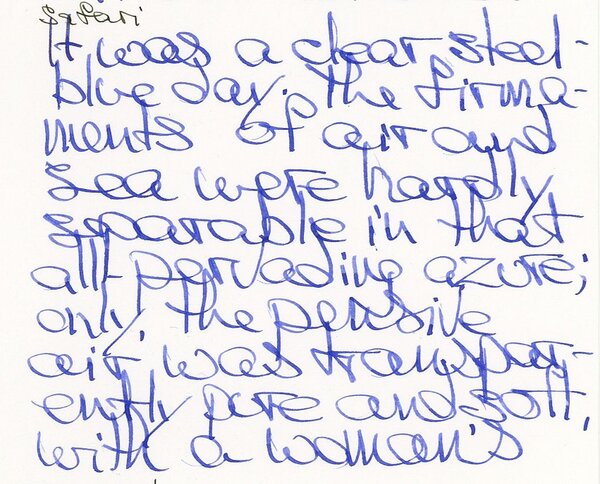 Safari
It was a clear steel-
blue day. The firma-
ments of air and
sea were hardly
separable in that
all-pervading azure;
only, the pensive
air was transpar-
ently pure and soft,
with a woman's